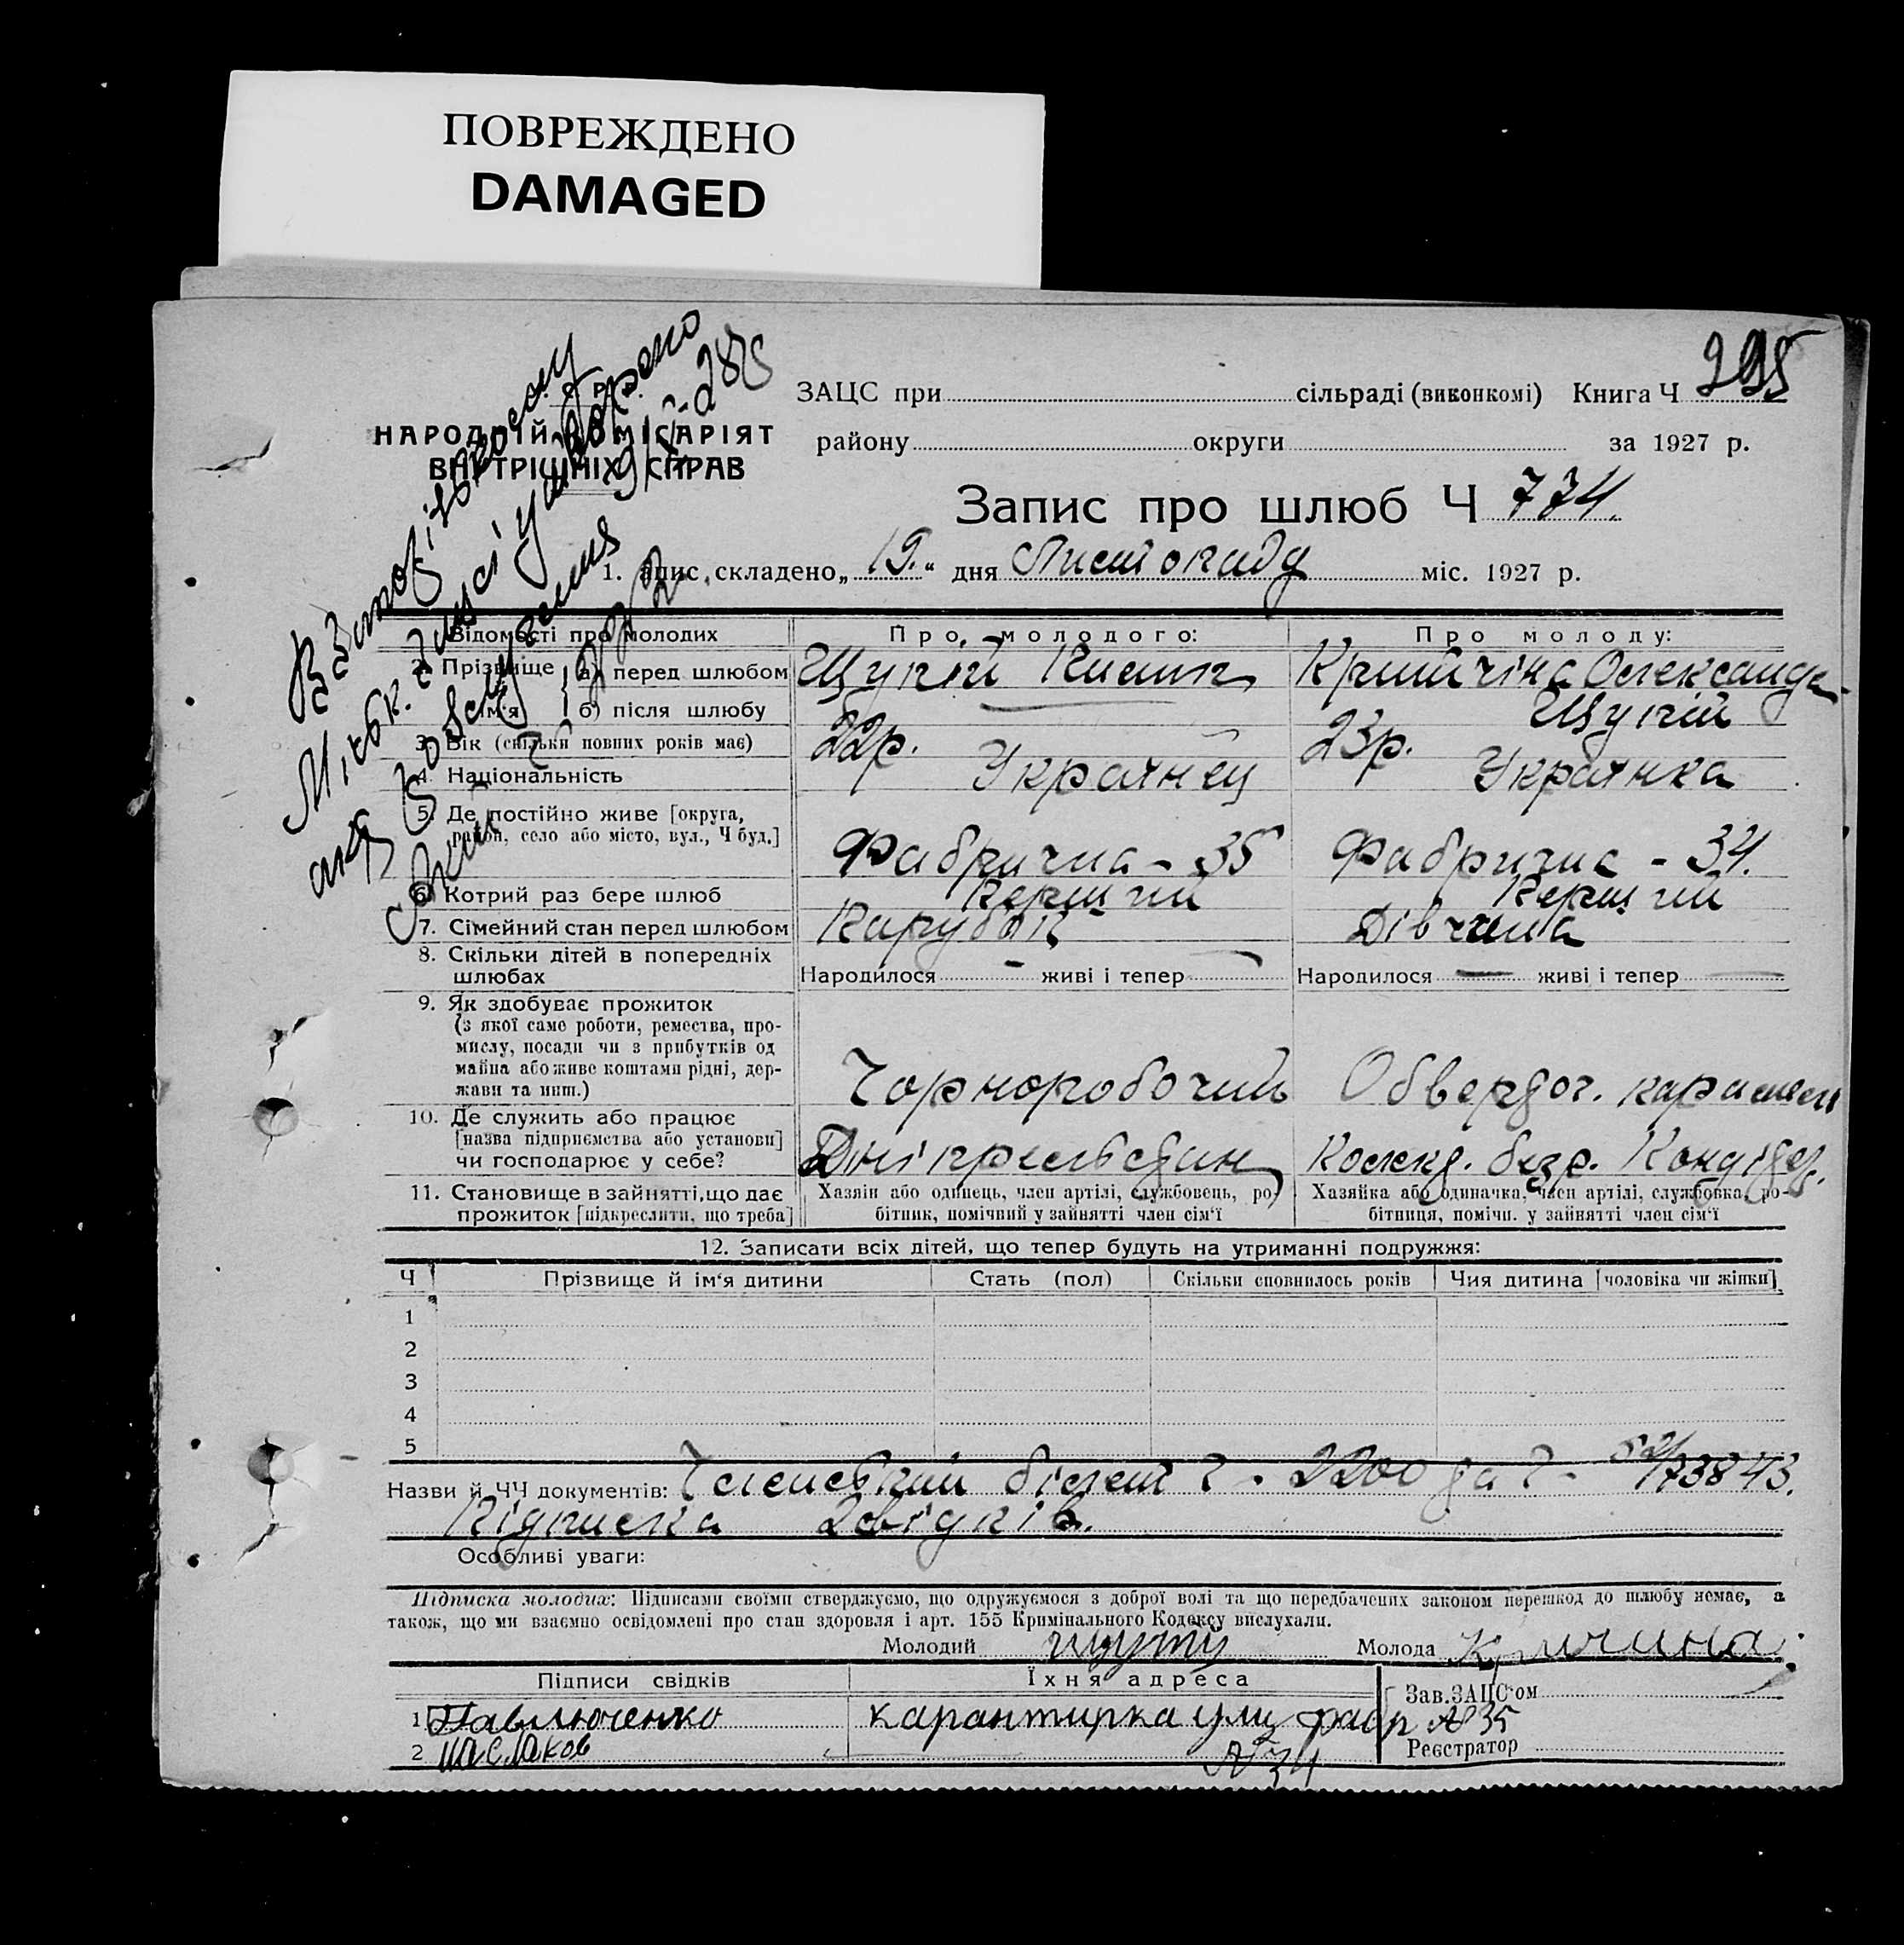 ПОВРЕЖДЕНО
DAMAGED
295
ЗАЦС при сільраді (виконкомі) Книга Ч
НАРОДНІЙ КОМІСАРІЯТ
ВНУТРІШНІХ СПРАВ
району округи за 1927 р.
Запис про шлюб Ч 774.
1. Запис складено „ 19. “ дня Листопаду міс. 1927 р.
Відомості про молодих Про молодого: Про молоду:
2. Прізвище а) перед шлюбом Щупій Олександ
ім'я б) після шлюбу Щупій
3. Вік (скільки повних років має) 22р. 23р.
4. Національність Украінец Украінка
5. Де постійно живе [округа,
район, село або місто, вул., Ч буд.]
Фабрична - 35 Фабрична - 34.
6. Котрий раз бере шлюб Перший Перший
7. Сімейний стан перед шлюбом Парубок Дівчина
8. Скільки дітей в попередніх
шлюбах Народилося - живі і тепер - Народилося - живі і тепер -
9. Як здобуває прожиток
(з якої саме роботи, ремества, про-
мислу, посади чи з прибутків од
майна або живе коштами рідні, дер-
жави та инш.)
Чорноробочий
10. Де служить або працює
[назва підприємства або установи]
чи господарює у себе?
11. Становище в зайнятті, що дає Хазяїн або одинець, член артілі, службовець, ро- Хазяйка або одиначка, член артілі, службовка, ро-
прожиток [підкреслити, що треба] бітник, помічний у зайнятті член сім'ї бітниця, помічн. у зайнятті член сім'ї
12. Записати всіх дітей, що тепер будуть на утриманні подружжя:
Ч Прізвище й ім'я дитини Стать (пол) Скільки сповнилось років Чия дитина [чоловіка чи жінки]
1
2
3
4
5
Назви й ЧЧ документів: Членський білет Ч - 2200 да Ч - 173843.
Підписка 2 свідків.
Особливі уваги:
Підписка молодих: Підписами своїми стверджуємо, що одружуємося з доброї волі та що передбачених законом перешкод до шлюбу немає, а
також, що ми взаємно освідомлені про стан здоровля і арт. 155 Кримінального Кодексу вислухали.
Молодий Молода Кричина
Підписи свідків Їхня адреса Зав. ЗАЦС'ом
1 Павлюченко карантирка улиц фабр № 35
2 Маслаков № 34 Реєстратор